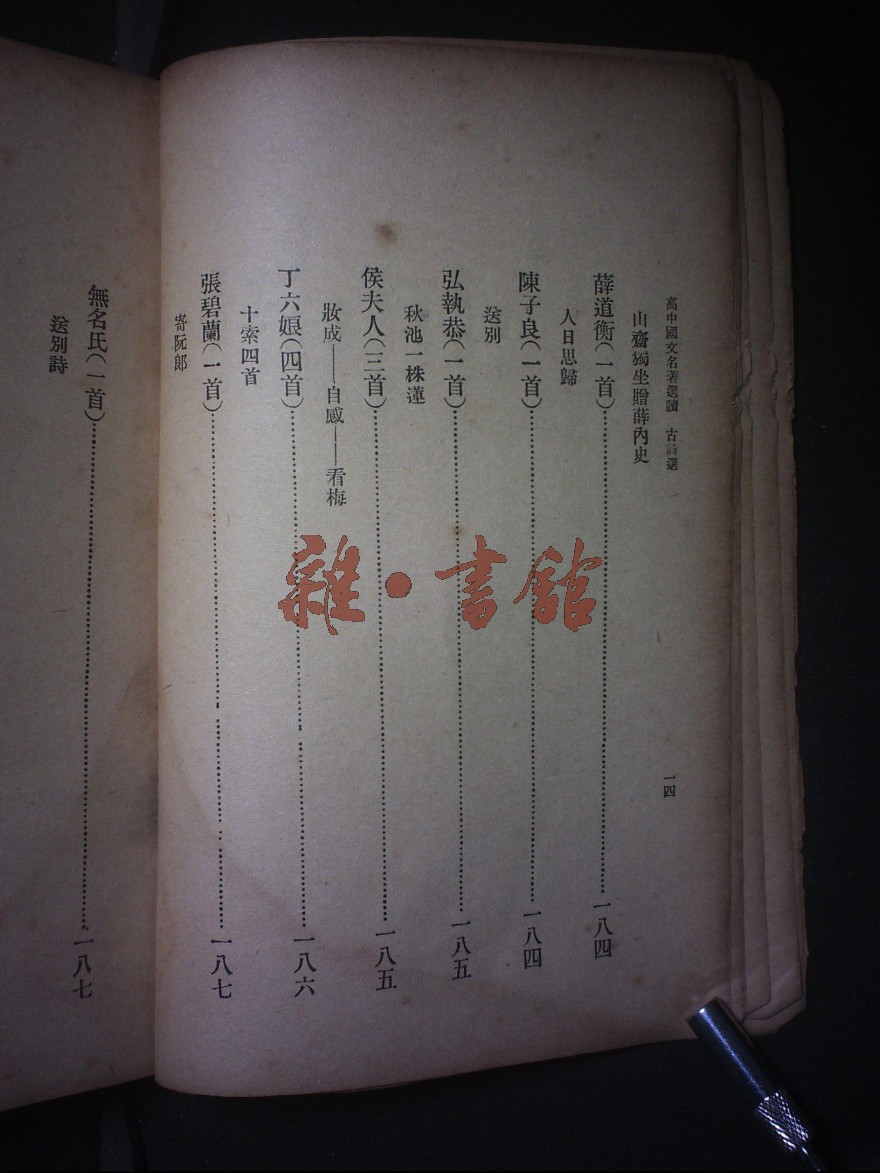 高中國文名著選讀　古詩選
一四
山齋獨坐贈薛內史
薛道衡(一首)……一八四
人日思歸
陳子良(一首)……一八四
送別
弘執恭(一首)……一八五
秋池一株蓮
侯夫人(三首)……一八五
妝成——自感——看梅
丁六娘(四首)……一八六
十索四首
張碧蘭(一首)……一八七
寄阮郎
無名氏(一首)……一八七
送別詩
雜·書館